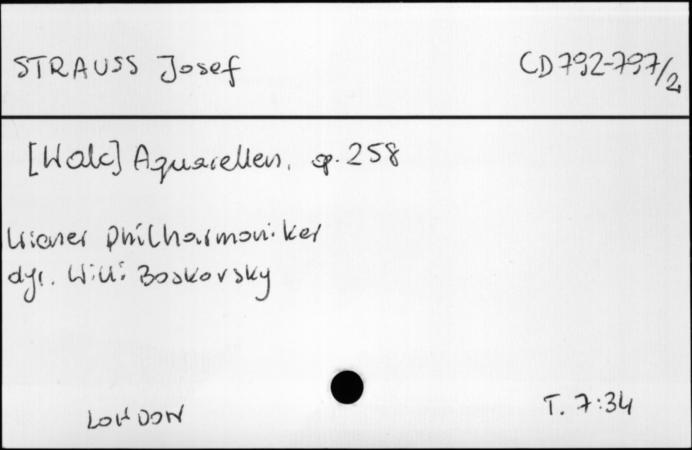 STRAUSS Josef
CD 792-797/2
[Walc] Aquarellen, op. 258
Wiener Philharmoniker
dyr. Willi Boskovsky
LONDON
T. 7:34